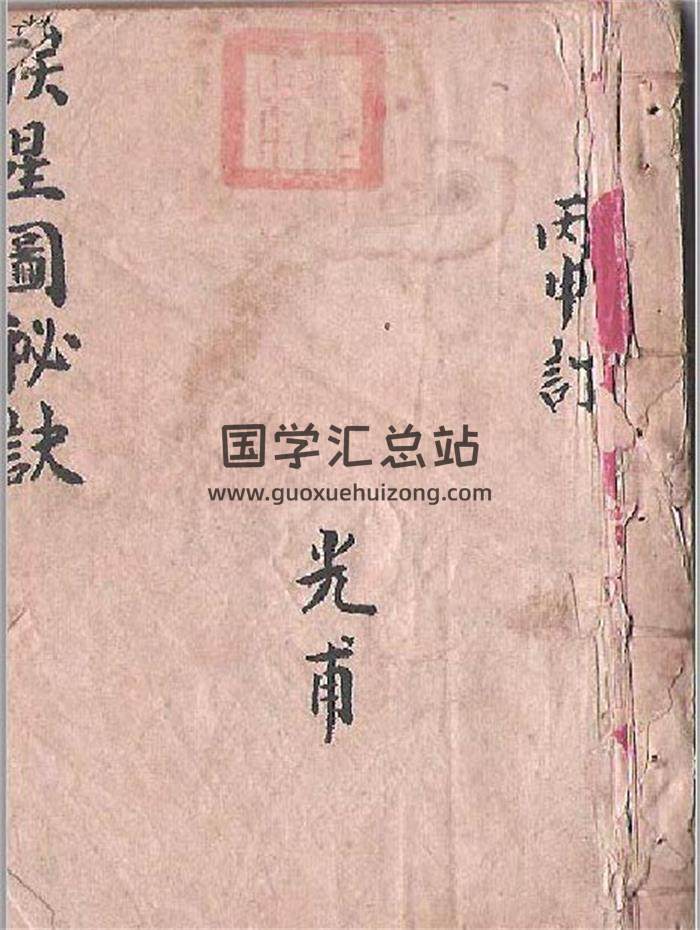 丙申訂
光甫
星圖秘訣
国学汇总站
www.guoxuehuizong.com